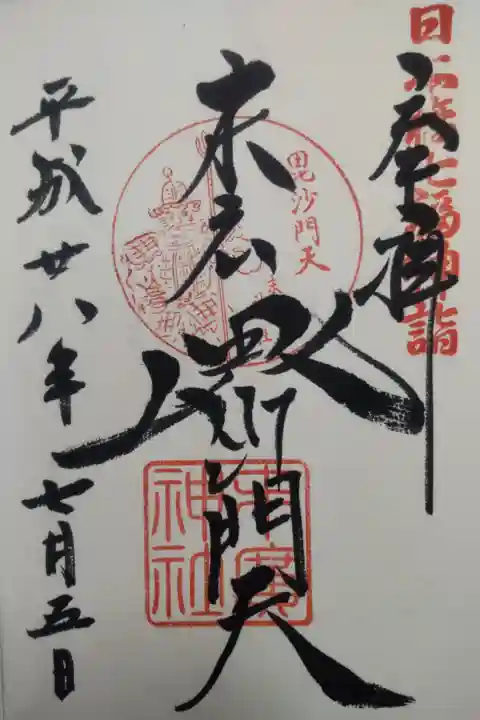 日本橋七福神詣
奉拝
末廣
毘沙門天
毘沙門天
末廣神社
平成廿八年七月五日